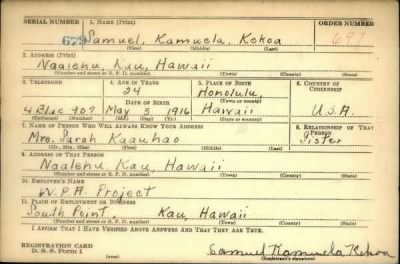 SERIAL NUMBER 1. NAME (Print) ORDER NUMBER
673 Samuel, Kamuela, Kekoa 697
(First) (Middle) (Last)
2. ADDRESS (Print)
Naalehu, Kau, Hawaii
(Number and street or R. F. D. number) (Town) (County) (State)
3. TELEPHONE 4. AGE IN YEARS 5. PLACE OF BIRTH 6. COUNTRY OF CITIZENSHIP
24 Honolulu,
DATE OF BIRTH (Town or county)
4 Blac 907 May 5 1916 Hawaii U.S.A.
(Exchange) (Number) (Mo.) (Day) (Yr.) (State or country)
7. NAME OF PERSON WHO WILL ALWAYS KNOW YOUR ADDRESS 8. RELATIONSHIP OF THAT PERSON
Mrs. Sarah Kaauhao Sister
(Mr., Mrs., Miss) (First) (Middle) (Last)
9. ADDRESS OF THAT PERSON
Naalehu, Kau, Hawaii
(Number and street or R. F. D. number) (Town) (County) (State)
10. EMPLOYER'S NAME
W.P.A. Project
11. PLACE OF EMPLOYMENT OR BUSINESS
South Point Kau, Hawaii
(Number and street or R. F. D. number) (Town) (County) (State)
I AFFIRM THAT I HAVE VERIFIED ABOVE ANSWERS AND THAT THEY ARE TRUE.
REGISTRATION CARD
D. S. S. Form 1
Samuel Kamuela Kekoa
(Registrant's signature)